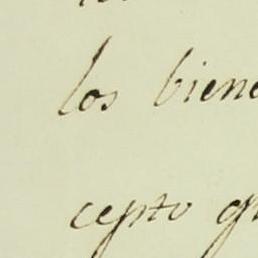 los biene
cepto q